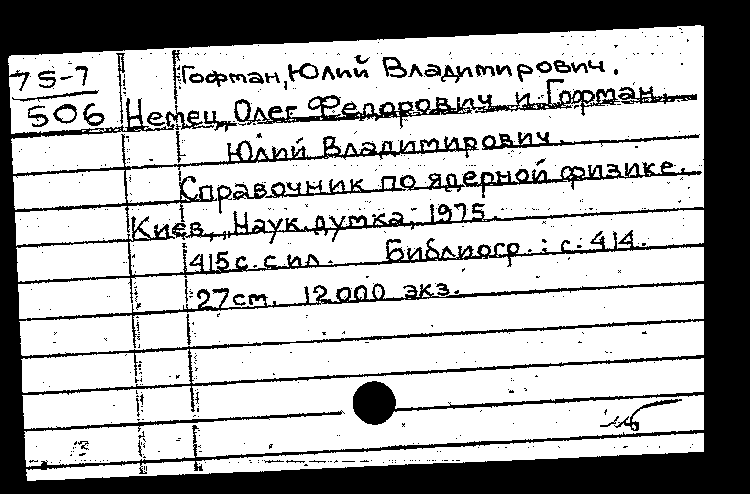 75-7
506
Гофман, Юлий Владимирович.
Немец, Олег Федорович и Гофман,
Юлий Владимирович.
Справочник по ядерной физике.
Киев, "Наук. думка", 1975.
415 с. с ил. Библиогр.: с. 414.
27 см. 12000 экз.